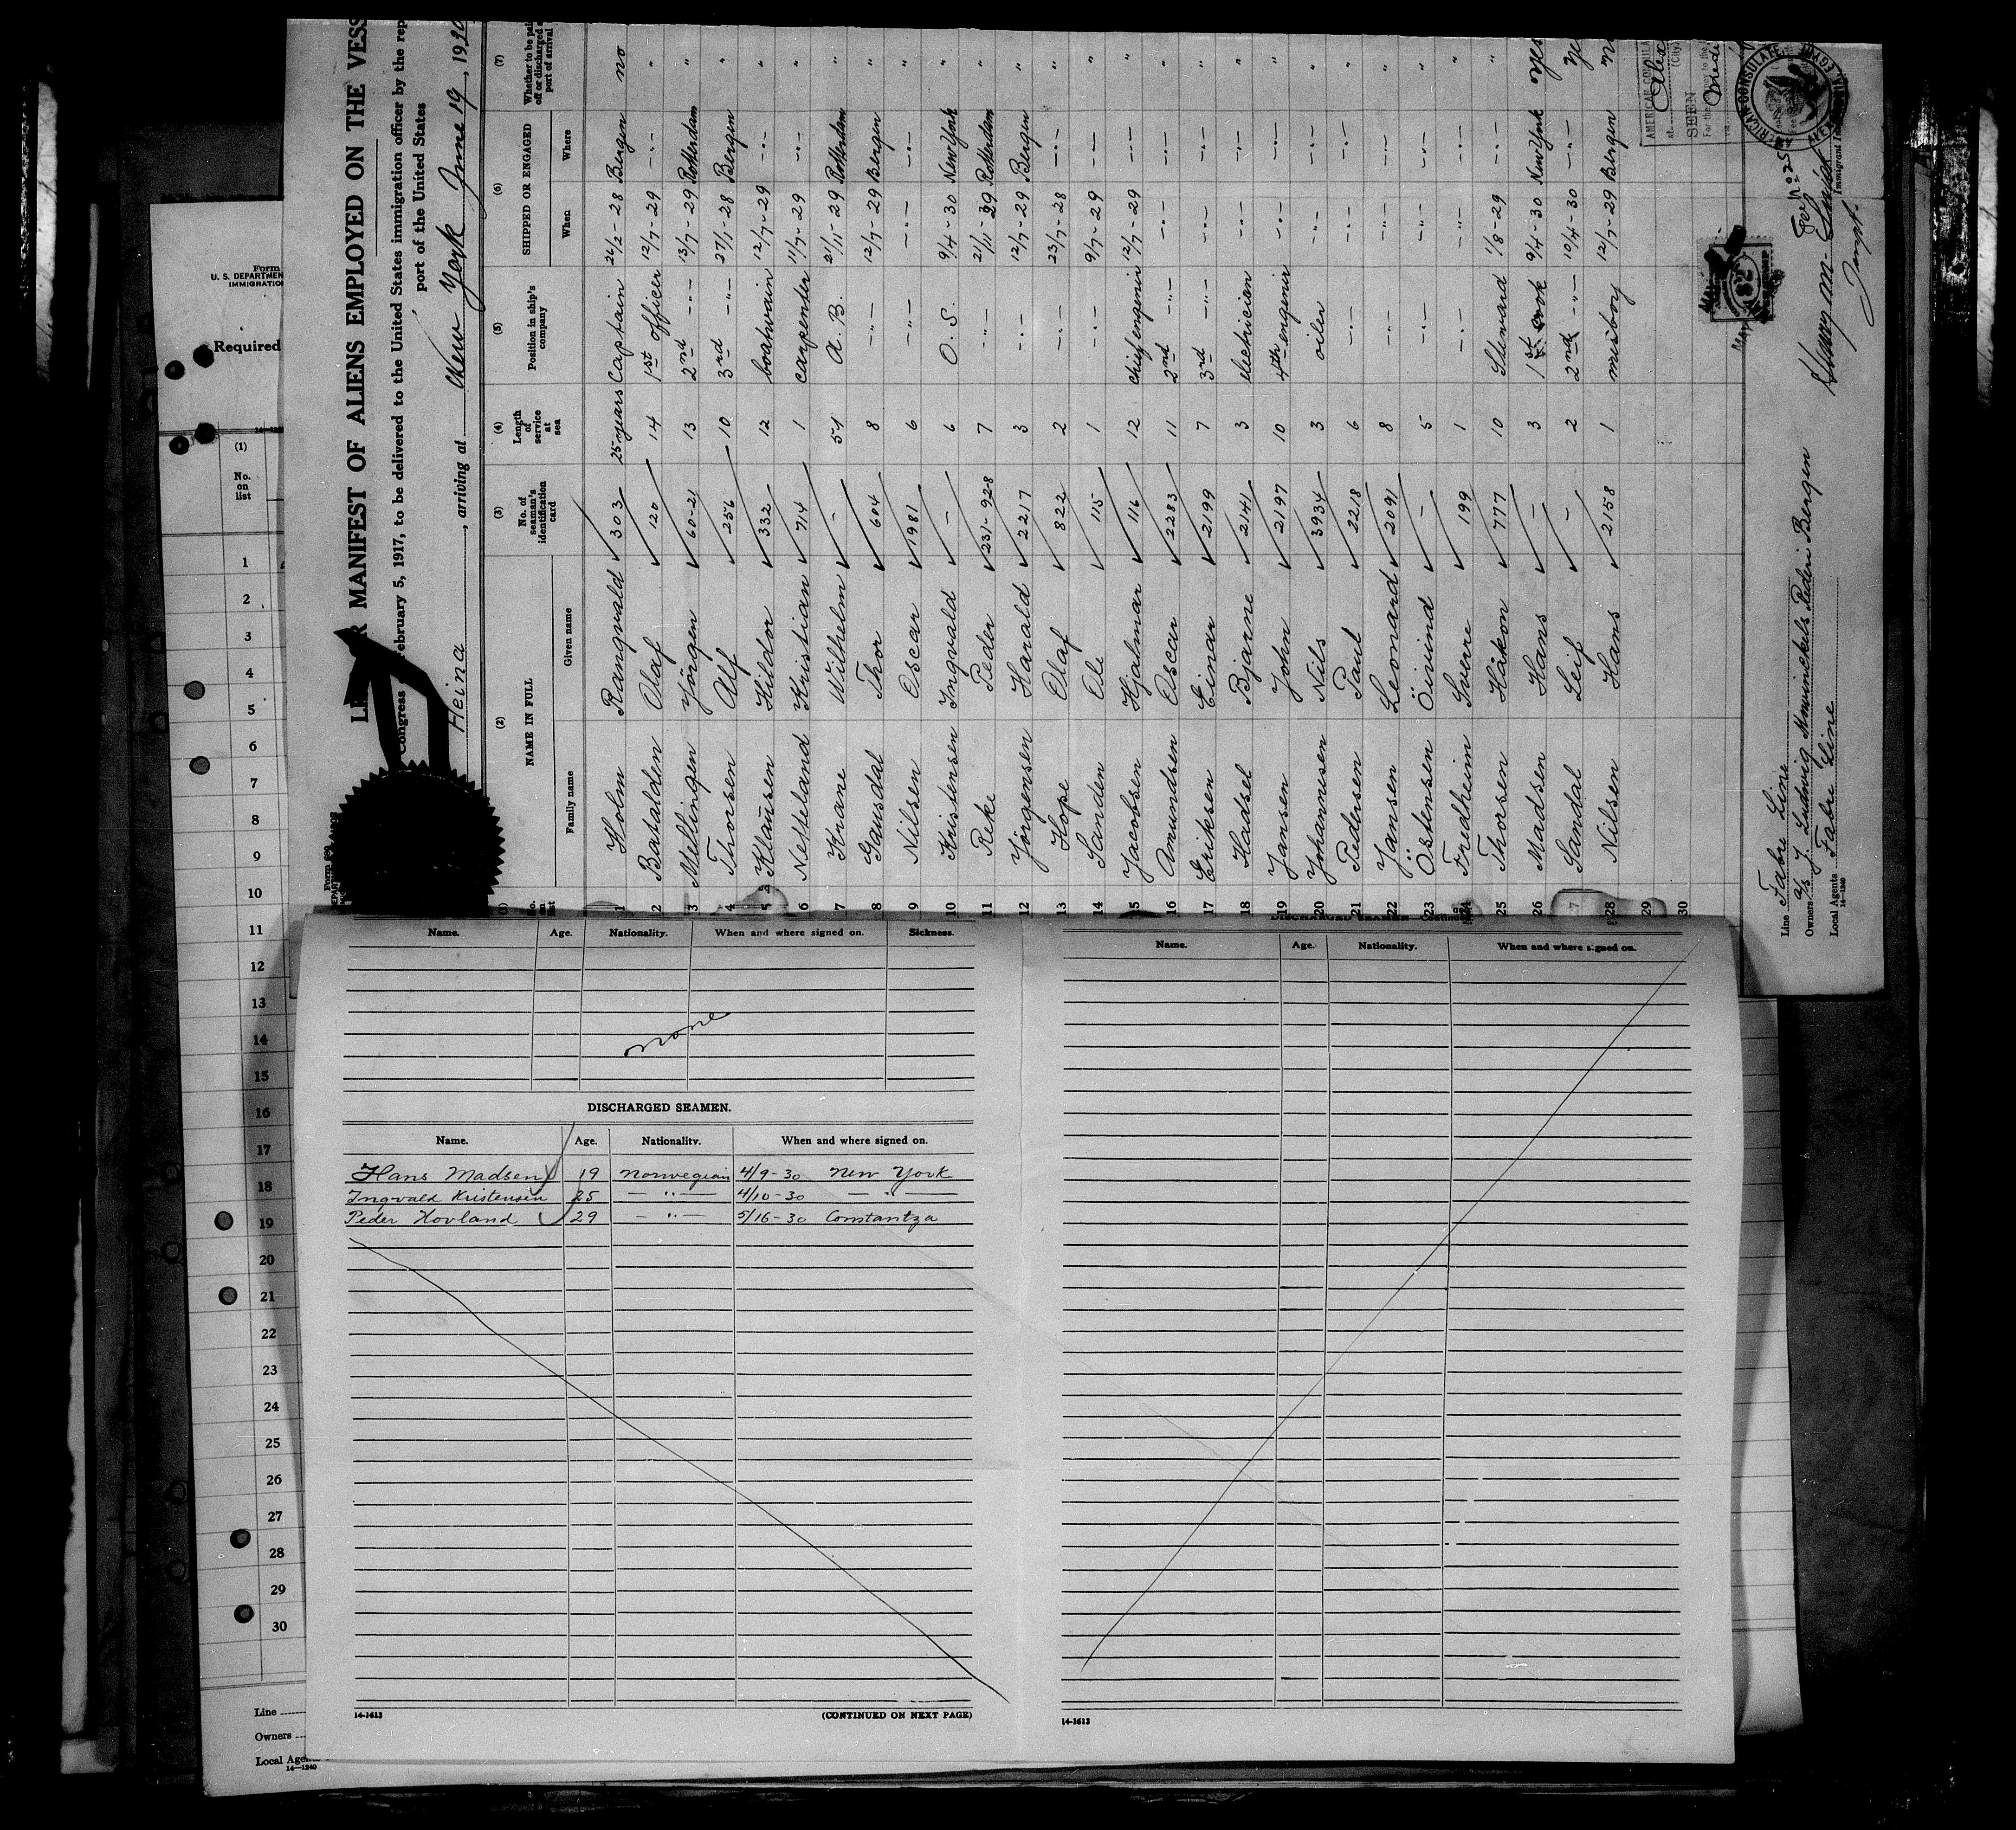 LE R MANIFEST OF ALIENS EMPLOYED ON THE VESS
Congress February 5, 1917, to be delivered to the United States immigration officer by the rep
port of the United States
Heina, arriving at New York June 19, 1930
(1) (2) (3) (4) (5) (6) (7)
NAME IN FULL
Family name Given name
No. of seaman's identification card
Length of service at sea
Position in ship's company
SHIPPED OR ENGAGED
When Where
Whether to be pai off or discharged port of arrival
1 Holm Rangvald 303 25 years Captain 24/2-28 Bergen no
2 Batalden Olaf 120 14 1st officer 12/7-29 -"- "
3 Mellingen Jörgen 60-21 13 2nd -"- 13/7-29 Rotterdam "
4 Thorsen Alf 256 10 3rd -"- 27/1-28 Bergen "
5 Klausen Hildor 332 12 boatswain 12/7-29 -"- "
6 Netteland Kristian 714 1 carpenter 11/7-29 -"- "
7 Krane Wilhelm - 51 A.B. 21/11-29 Rotterdam "
8 Gausdal Thor 604 8 -"- 12/7-29 Bergen "
9 Nilsen Oscar 1981 6 -"- -"- -"- "
10 Kristensen Ingvald - 6 O.S. 9/4-30 New York "
11 Reke Peder 231-928 7 -"- 21/11-29 Rotterdam "
12 Jörgensen Harald 2217 3 -"- 12/7-29 Bergen "
13 Hope Olaf 822 2 -"- 23/7-28 -"- "
14 Sanden Ole 115 1 -"- 9/7-29 -"- "
15 Jacobsen Hjalmar 116 12 chief engenir 12/7-29 -"- "
16 Amundsen Oscar 2283 11 2nd -"- -"- -"- "
17 Eriksen Einar 2199 7 3rd -"- -"- -"- "
18 Hadsel Bjarne 2141 3 electrician -"- -"- "
19 Jansen John 2197 10 4th engenir -"- -"- "
20 Johannesen Nils 3934 3 oiler -"- -"- "
21 Pedersen Paul 2218 6 -"- -"- -"- "
22 Jansen Leonard 2091 8 -"- -"- -"- "
23 Östensen Öivind - 5 -"- -"- -"- "
24 Fredheim Sverre 199 1 -"- -"- -"- "
25 Thorsen Håkon 777 10 Steward 1/8-29 -"- "
26 Madsen Hans - 3 1st cook 9/4-30 New York yes
27 Sandal Leif - 2 2nd -"- 10/4-30 -"-
28 Nilsen Hans 2158 1 messboy 12/7-29 Bergen
29
30
Line Fabre Line
Owners a/s J. Ludwig Mowinckels Rederi Bergen
Local Agents Fabre Line
14-1240
AMERICAN CONSULA
at
(City)
SEEN
Immigrant In
Form
U. S. DEPARTMEN
IMMIGRATIO
Required
(1)
No. on list
1
2
3
4
5
6
7
8
9
10
11
12
13
14
15
16
17
18
19
20
21
22
23
24
25
26
27
28
29
30
Line
Owners
Local Age
14-1240
Name. Age. Nationality. When and where signed on. Sickness.
none
DISCHARGED SEAMEN.
Name. Age. Nationality. When and where signed on.
Hans Madsen 19 Norwegian 4/9-30 New York
Ingvald Kristensen 25 -"- 4/10-30 -"-
Peder Hovland 29 -"- 5/16-30 Constantza
14-1613 (CONTINUED ON NEXT PAGE)
DISCHARGED SEAMEN—Continued
Name. Age. Nationality. When and where signed on.
14-1613